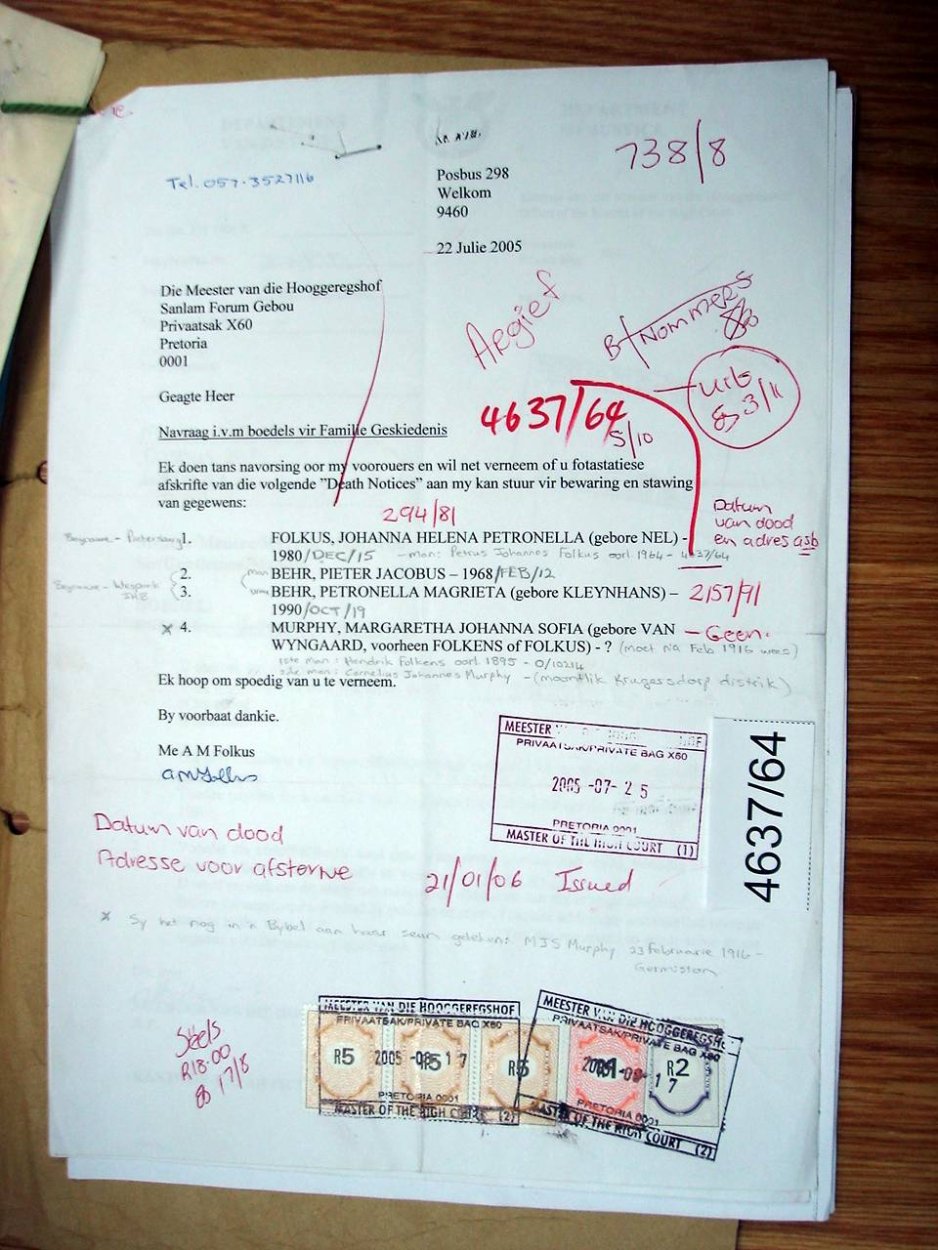 738/8
Tel. 057-3527116
Posbus 298
Welkom
9460
22 Julie 2005
Die Meester van die Hooggeregshof
Sanlam Forum Gebou
Privaatsak X60
Pretoria
0001
Argief
B/Nommers
Geagte Heer
uit
3/11
4637/64
5/10
Navraag i.v.m boedels vir Familie Geskiedenis
Ek doen tans navorsing oor my voorouers en wil net verneem of u fotastatiese
afskrifte van die volgende "Death Notices" aan my kan stuur vir bewaring en stawing
van gegewens:
Datum
van dood
en adres asb
294/81
1. FOLKUS, JOHANNA HELENA PETRONELLA (gebore NEL) -
1980/DEC/15 - man: Petrus Johannes Folkus oorl. 1964 - 4637/64
2. man BEHR, PIETER JACOBUS – 1968/FEB/12
3. BEHR, PETRONELLA MAGRIETA (gebore KLEYNHANS) – 2157/91
1990/OCT/19
x 4. MURPHY, MARGARETHA JOHANNA SOFIA (gebore VAN - Geen.
WYNGAARD, voorheen FOLKENS of FOLKUS) - ? (moet na Feb 1916 wees)
1ste man: Hendrik Folkens oorl. 1895 - 0/10214
2de man: Cornelius Johannes Murphy - (moontlik Krugersdorp distrik)
Ek hoop om spoedig van u te verneem.
By voorbaat dankie.
Me A M Folkus
MEESTER
PRIVAATSAK/PRIVATE BAG X60
2005 -07- 25
PRETORIA 0001
MASTER OF THE HIGH COURT (1)
4637/64
Datum van dood
Adresse voor afsterwe
21/01/06 Issued
x Sy het nog in 'n Bybel aan haar seun geteken: MJS Murphy 23 Februarie 1916 -
Germiston
Seëls
R18.00
17/8
MEESTER VAN DIE HOOGGEREGSHOF
PRIVAATSAK/PRIVATE BAG X60
R5 2005 -08- 17 R5 R5
PRETORIA 0001
MASTER OF THE HIGH COURT (2)
MEESTER VAN DIE HOOGGEREGSHOF
PRIVAATSAK/PRIVATE BAG X60
R2
17
PRETORIA 0001
MASTER OF THE HIGH COURT (2)